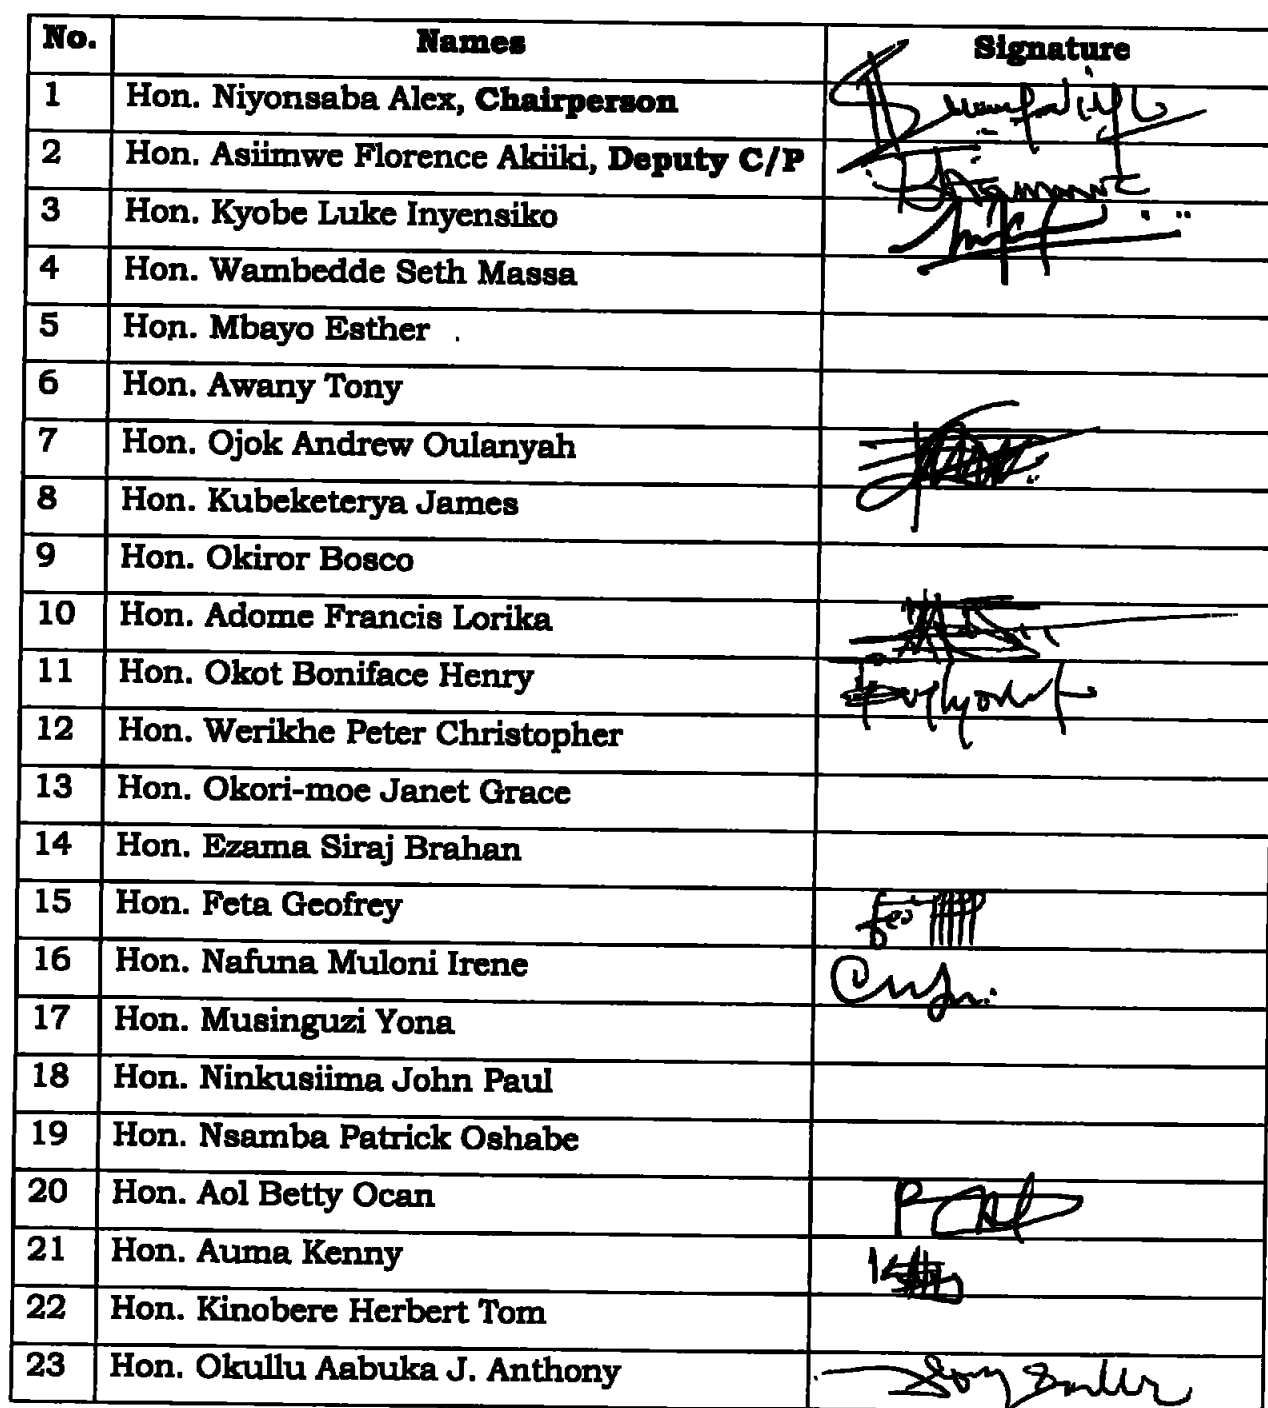 No. Names Signature
1 Hon. Niyonsaba Alex, Chairperson
2 Hon. Asiimwe Florence Akiiki, Deputy C/P
3 Hon. Kyobe Luke Inyensiko
4 Hon. Wambedde Seth Massa
5 Hon. Mbayo Esther
6 Hon. Awany Tony
7 Hon. Ojok Andrew Oulanyah
8 Hon. Kubeketerya James
9 Hon. Okiror Bosco
10 Hon. Adome Francis Lorika
11 Hon. Okot Boniface Henry
12 Hon. Werikhe Peter Christopher
13 Hon. Okori-moe Janet Grace
14 Hon. Ezama Siraj Brahan
15 Hon. Feta Geofrey
16 Hon. Nafuna Muloni Irene
17 Hon. Musinguzi Yona
18 Hon. Ninkusiima John Paul
19 Hon. Nsamba Patrick Oshabe
20 Hon. Aol Betty Ocan
21 Hon. Auma Kenny
22 Hon. Kinobere Herbert Tom
23 Hon. Okullu Aabuka J. Anthony